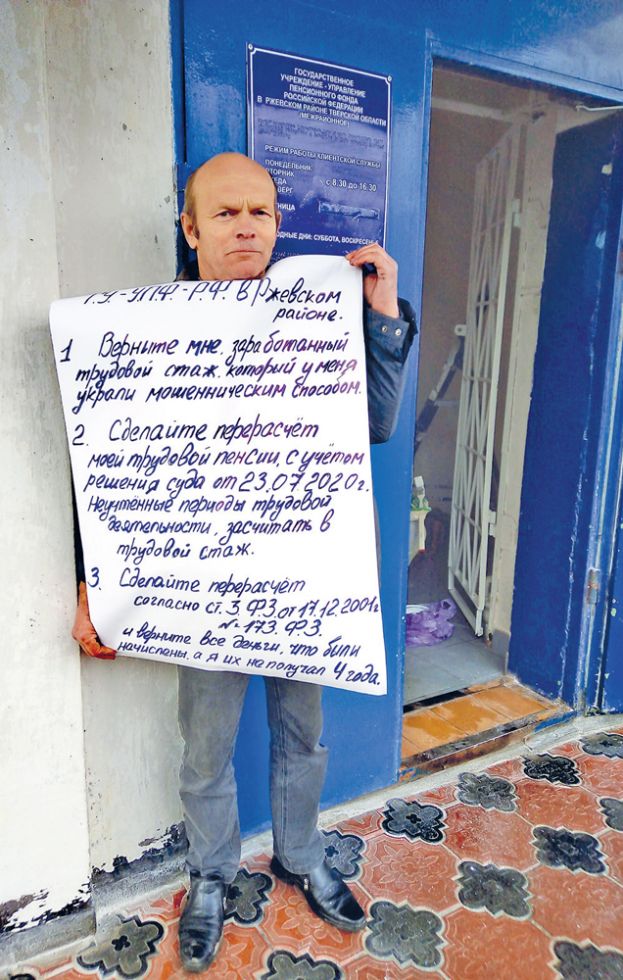 ГОСУДАРСТВЕННОЕ
УЧРЕЖДЕНИЕ - УПРАВЛЕНИЕ
ПЕНСИОННОГО ФОНДА
РОССИЙСКОЙ ФЕДЕРАЦИИ
В РЖЕВСКОМ РАЙОНЕ ТВЕРСКОЙ ОБЛАСТИ
(МЕЖРАЙОННОЕ)
РЕЖИМ РАБОТЫ КЛИЕНТСКОЙ СЛУЖБЫ
ПОНЕДЕЛЬНИК
ВТОРНИК
с 8.30 до 16.30
СУББОТА, ВОСКРЕСЕН
Г.У.-У.П.Ф.-Р.Ф. в Ржевском
районе.
1 Верните мне, заработанный
трудовой стаж, который у меня
украли мошенническим способом.
2. Сделайте перерасчёт
моей трудовой пенсии, с учётом
решения суда от 23.07.2020г.
Неучтённые периоды трудовой
деятельности, засчитать в
трудовой стаж.
3. Сделайте перерасчёт
согласно ст. 3 Ф.З. от 17.12.2001г
№ 173. Ф.З.
и верните все деньги, что были
начислены, а я их не получал 4 года.